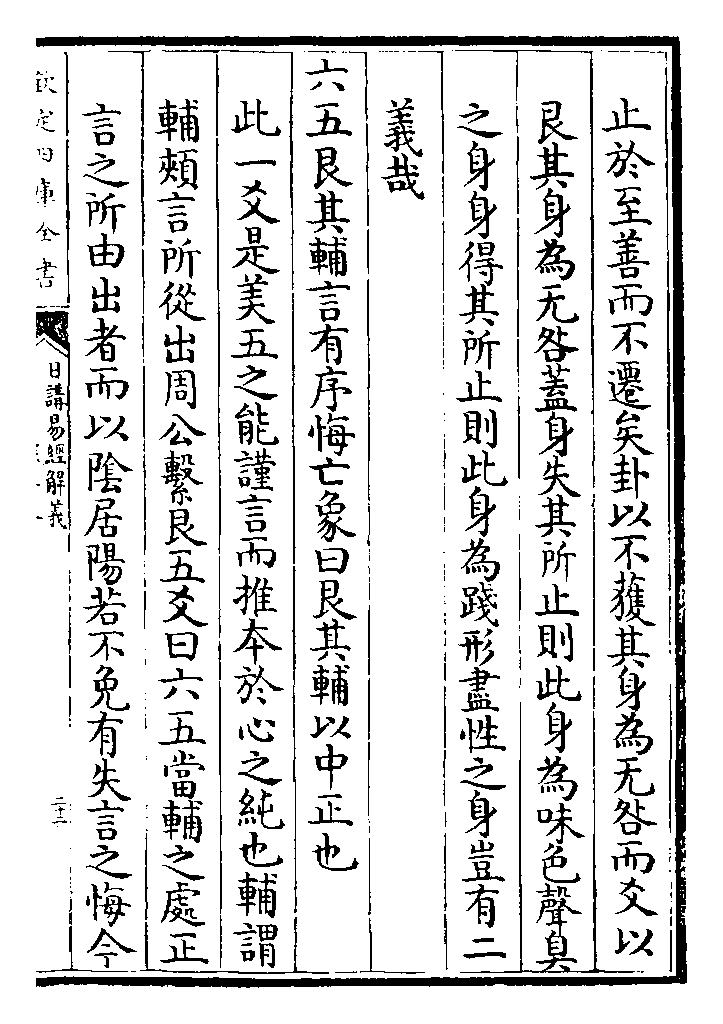 止於至善而不遷矣卦以不獲其身為无咎而爻以
艮其身為无咎蓋身失其所止則此身為味色聲臭
之身身得其所止則此身為踐形盡性之身豈有二
義哉
六五艮其輔言有序悔亡象曰艮其輔以中正也
此一爻是美五之能謹言而推本於心之純也輔謂
輔頰言所從出周公繫艮五爻曰六五當輔之處正
言之所由出者而以隂居陽若不免有失言之悔今
欽定四庫全書
日講易經解義
二十二